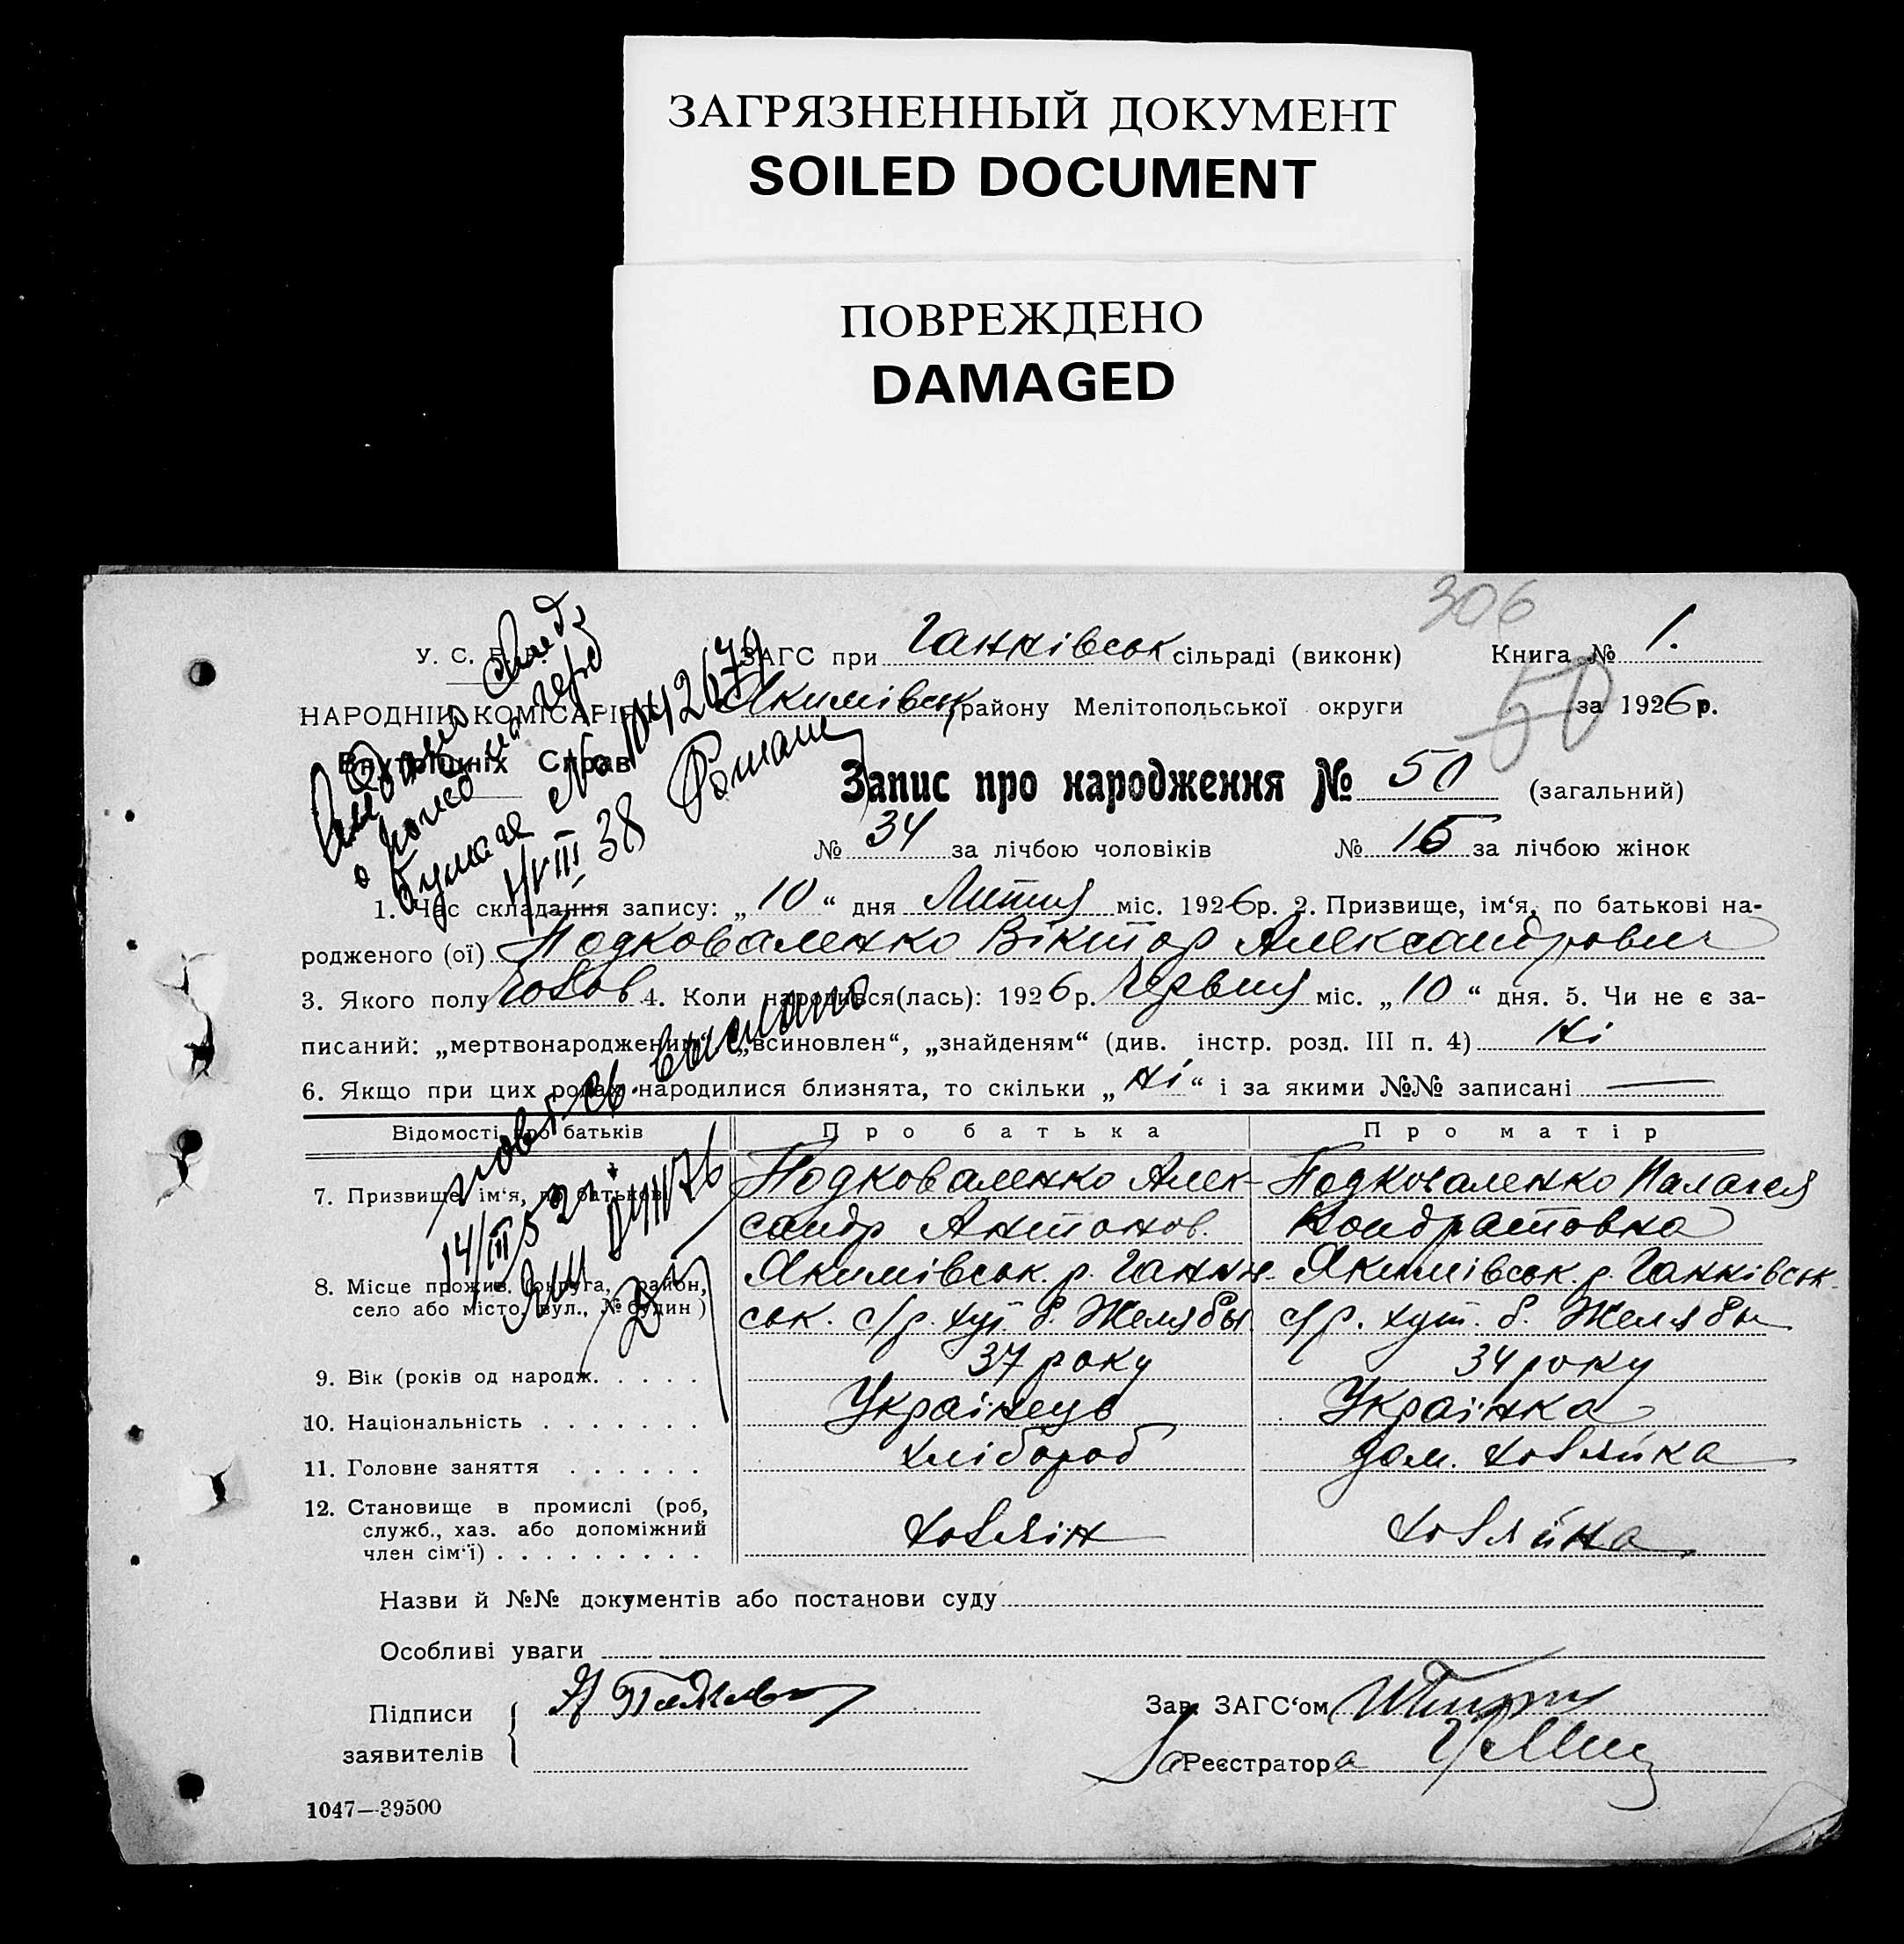 ЗАГРЯЗНЕННЫЙ ДОКУМЕНТ
SOILED DOCUMENT
ПОВРЕЖДЕНО
DAMAGED
306
У. С. ЗАГС при Ганківськ сільраді (виконк) Книга № 1.
НАРОДНІЙ КОМІСАРІЯТ Якимівськ району Мелітопольської округи за 1926 р.
50
Внутрішніх Справ
Запис про народження № 50 (загальний)
№ 34 за лічбою чоловіків № 16 за лічбою жінок
бумаге № 1042679
38 Романи
1. Час складання запису: „10“ дня Липня міс. 1926р. 2. Призвище, ім‘я, по батькові на-
родженого (ої) Подковаленко Віктор Александрович
3. Якого полу чолов 4. Коли народився(лась): 1926р. Червня міс. „10“ дня. 5. Чи не є за-
писаний: „мертвонародженим“, „всиновлен“, „знайденям“ (див. інстр. розд. III п. 4) ні
6. Якщо при цих родах народилися близнята, то скільки „ні“ і за якими №№ записані —
повт. св. выслано
14/III 52
Відомості про батьків Про батька Про матір
7. Призвище, ім‘я, по батькові Подковаленко Алек- Подковаленко Палагея
сандр Антонов. Кондратовна
8. Місце прожив. (округа, район, Якимівськ. р. Ганків- Якимівськ. р. Ганківськ-
село або місто, вул., № будин) ськ. с/р. хут. б. Желябы с/р. хут. б. Желябы
9. Вік (років од народж. . . . . . 37 року 34 року
10. Національність . . . . . . . Українець Українка
11. Головне заняття . . . . . . хлібороб дом. хозяйка
12. Становище в промислі (роб,
служб., хаз. або допоміжний хозяін хозяйка
член сім‘ї) . . . . . . . . .
Назви й №№ документів або постанови суду
Особливі уваги
Підписи Зав. ЗАГС‘ом
заявителів За Реєстратора
1047—39500